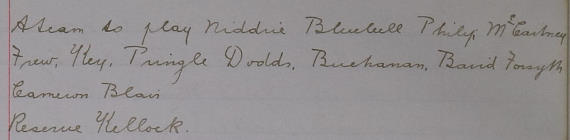 A team to play Niddrie Bluebell Philip, McCartney
Frew, Key, Pringle Dodds, Buchanan, Baird Forsyth
Cameron Blair
Reserve Kellock.